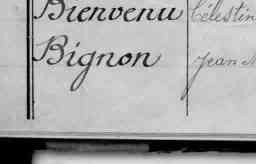 Bienvenu Célestin
Bignon Jean